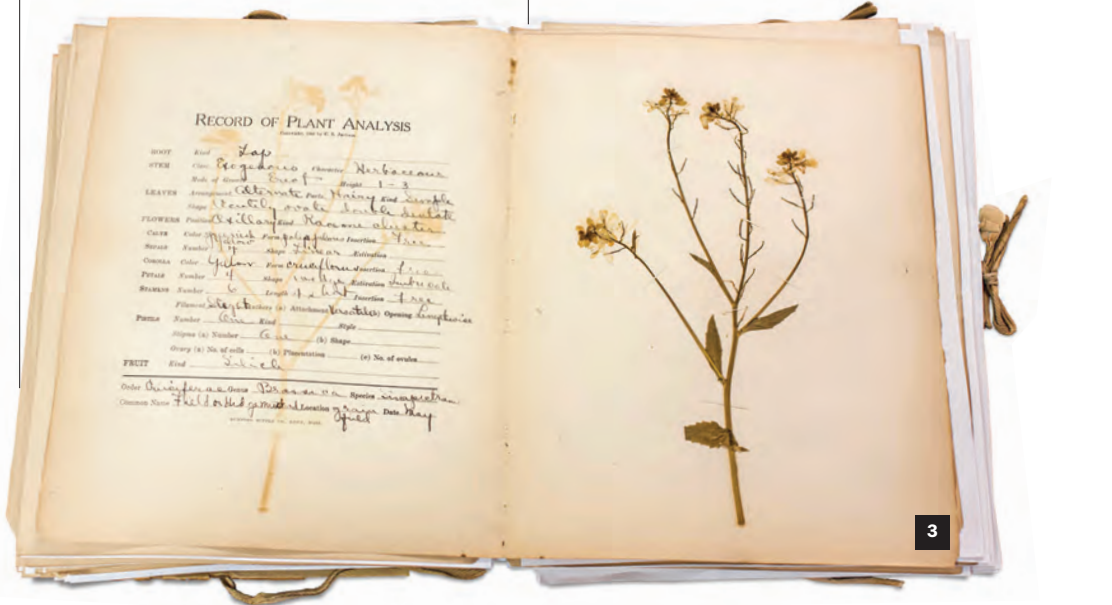 RECORD OF PLANT ANALYSIS
ROOT Kind Tap
STEM Class Exogenous Character Herbaceous
Mode of Growth Erect Height 1 - 3
LEAVES Arrangement Alternate Form Hairy Kind Simple
Shape ovate double
FLOWERS Position Axillary Kind Raceme cluster
CALYX Color Form Insertion Free
SEPALS Number 4 Shape Linear Estivation
COROLLA Color Yellow Form cruciform Insertion free
PETALS Number 4 Shape Estivation
STAMENS Number 6 Length 4 Insertion free
Filament Anthers (a) Attachment Versatile (b) Opening Lengthwise
PISTILS Number One Kind Style
Stigma (a) Number One (b) Shape
Ovary (a) No. of cells (b) Placentation (c) No. of ovules
FRUIT Kind
Order Cruciferae Genus Brassica Species
Common Name Field or Hedge mustard Location grain field Date May
3